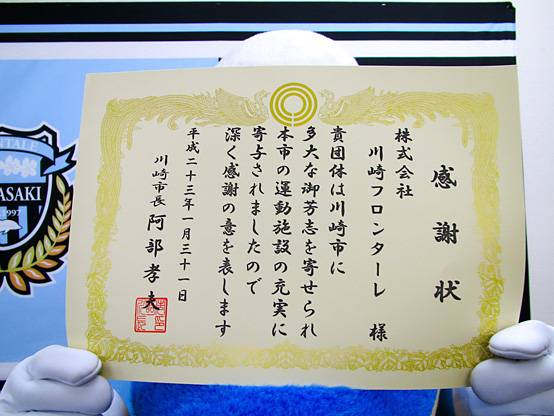 感謝状
株式会社
川崎フロンターレ 様
貴団体は川崎市に
多大な御芳志を寄せられ
本市の運動施設の充実に
寄与されましたので
深く感謝の意を表します
平成二十三年一月三十一日
川崎市長 阿部孝夫
NTALE
ASAKI
1997